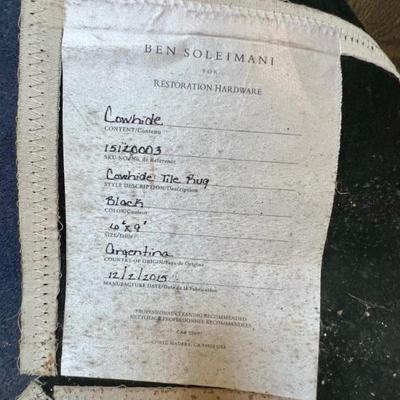 BEN SOLEIMANI
FOR
RESTORATION HARDWARE
Cowhide
CONTENT/Contenu
15120003
SKU NO/No. de Reference
Cowhide Tile Rug
STYLE DESCRIPTION/Description
Black
COLOR/Couleur
6' x 9'
SIZE/Taille
Argentina
COUNTRY OF ORIGIN/Pays de Origine
12/2/2015
MANUFACTURE DATE/Date de la Fabrication
PROFESSIONAL CLEANING RECOMMENDED
NETTOYAGE PROFESSIONNEL RECOMMANDÉE
CORTE MADERA, CA 94925 USA